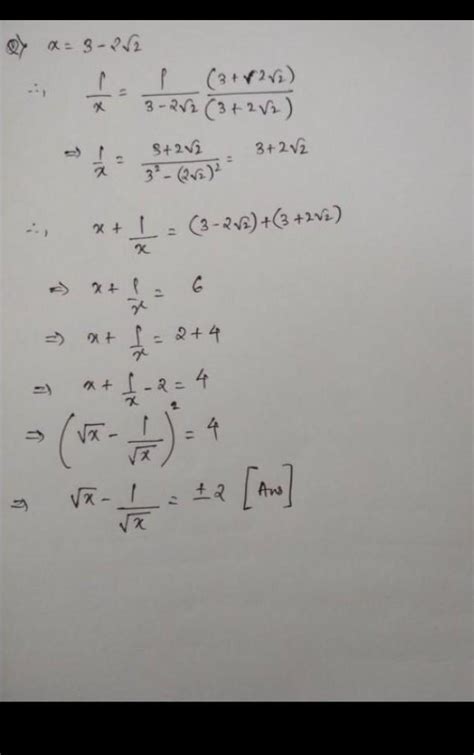 Q) x = 3 - 2√2
∴, 1/x = 1/(3 - 2√2) (3 + √2√2)/(3 + 2√2)
⇒ 1/x = (3 + 2√2)/(3² - (2√2)²) = 3 + 2√2
∴, x + 1/x = (3 - 2√2) + (3 + 2√2)
⇒ x + 1/x = 6
⇒ x + 1/x = 2 + 4
⇒ x + 1/x - 2 = 4
⇒ (√x - 1/√x)² = 4
⇒ √x - 1/√x = ± 2 [Ans]